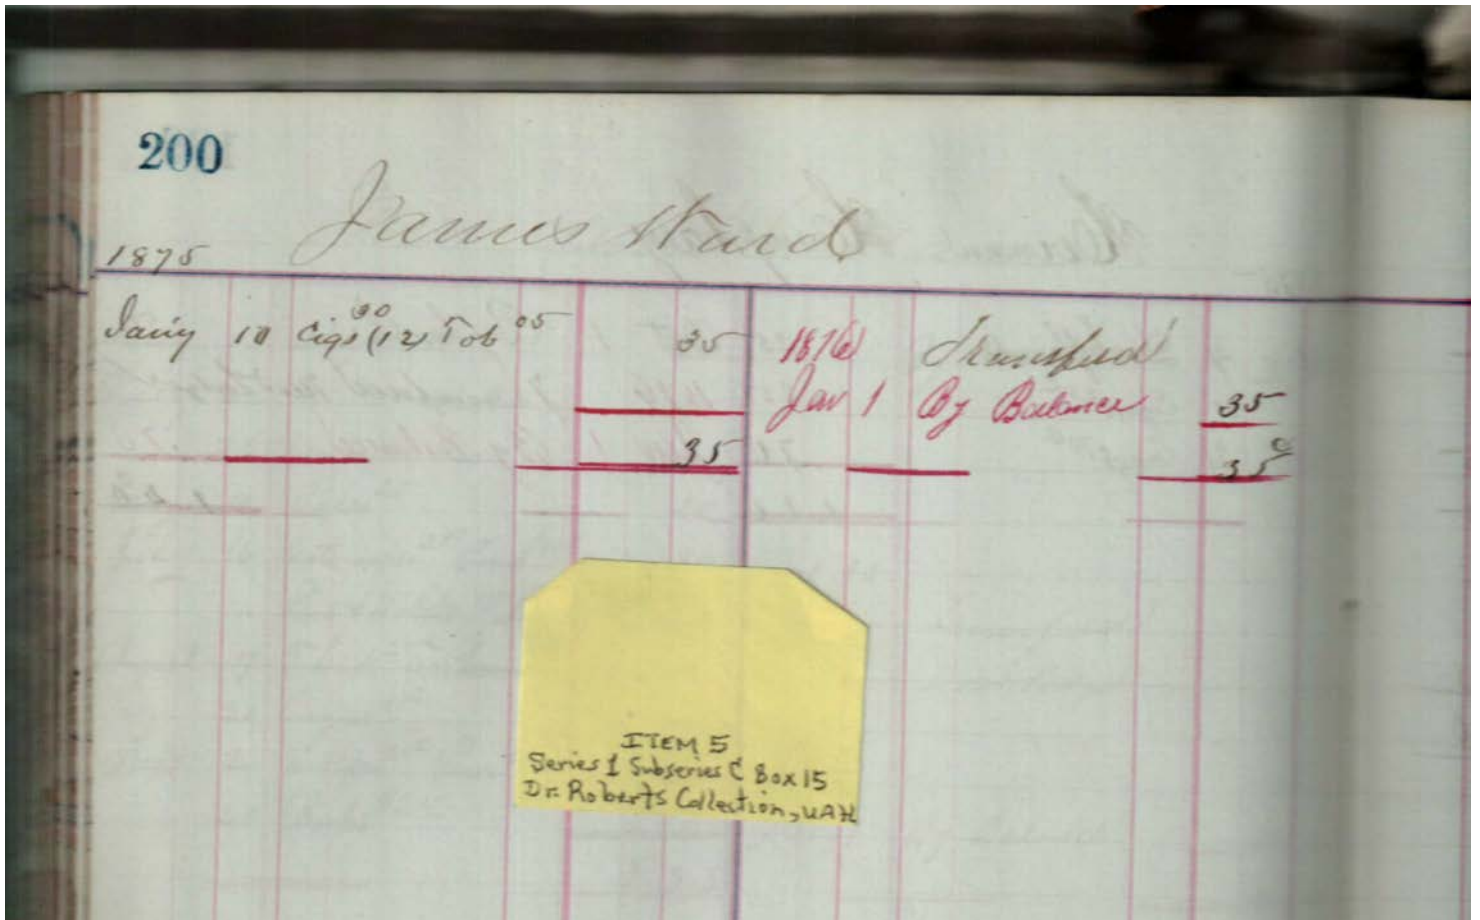 200
James Ward
1875
Jan'y 10 Cigs 30 (12) Tob 05 35
35
1876 Transferd
Jan 1 By Balance 35
35
ITEM 5
Series 1 Subseries C Box 15
Dr. Roberts Collection, UAH